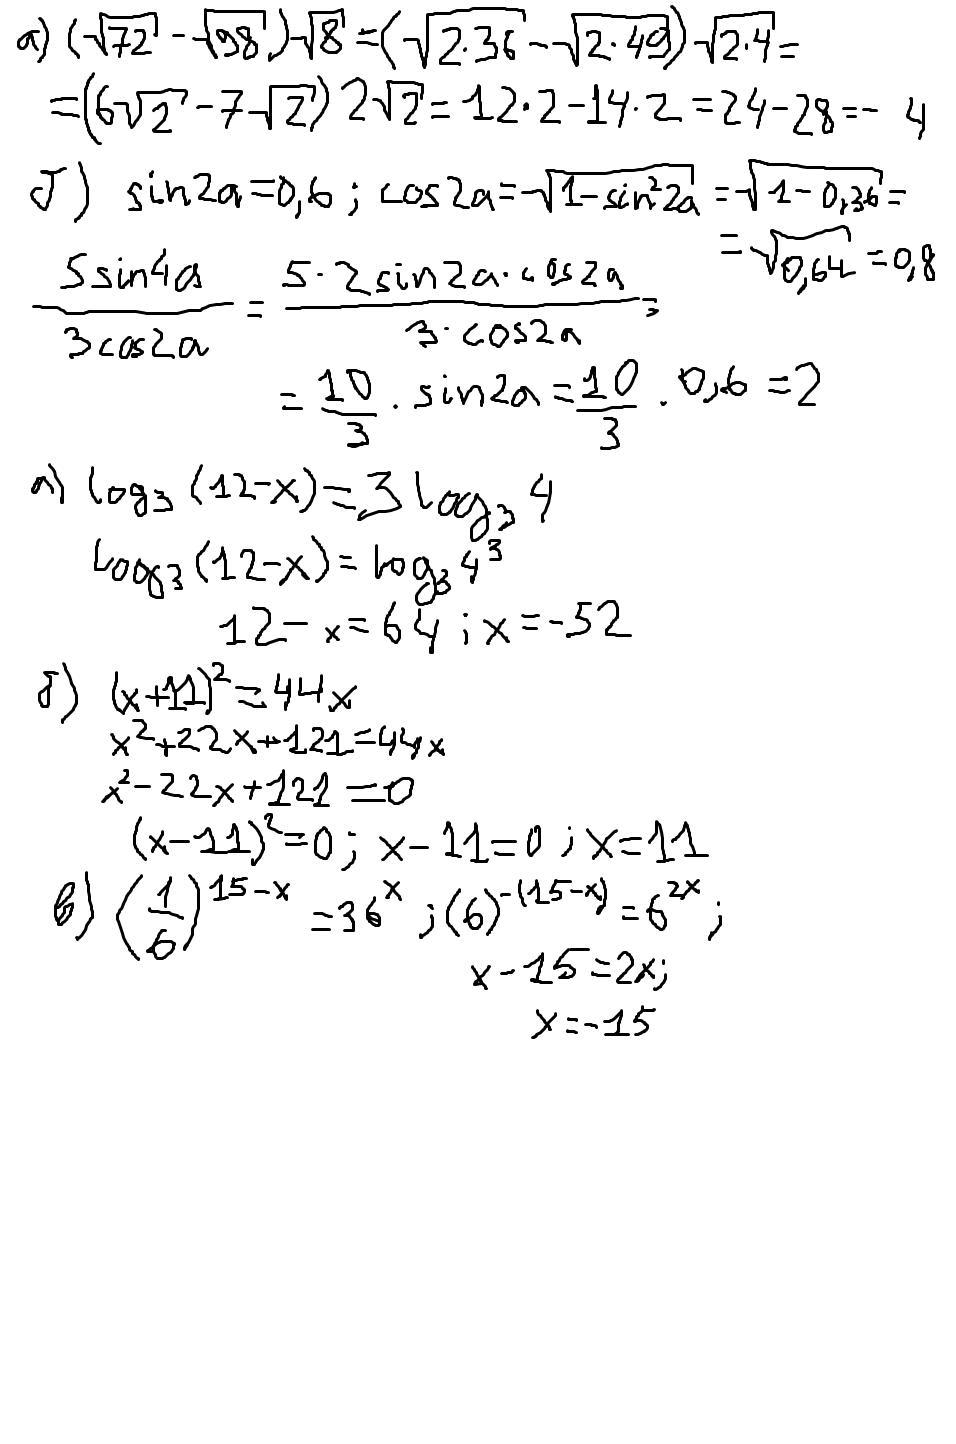 а) (√72 - √98)√8 = (√2·36 - √2·49)√2·4 =
= (6√2 - 7√2) 2√2 = 12·2 - 14·2 = 24 - 28 = - 4
б) sin2a = 0,6 ; cos2a = √1-sin²2a = √1-0,36 =
= √0,64 = 0,8
5sin4a/3cos2a = 5·2sin2a·cos2a/3·cos2a =
= 10/3 · sin2a = 10/3 · 0,6 = 2
а) log₃(12-x) = 3log₃4
log₃(12-x) = log₃4³
12-x = 64 ; x = -52
б) (x+11)² = 44x
x²+22x+121=44x
x²-22x+121=0
(x-11)²=0 ; x-11=0 ; x=11
в) (1/6)^15-x = 36^x ; (6)^-(15-x) = 6^2x ;
x-15=2x;
x=-15